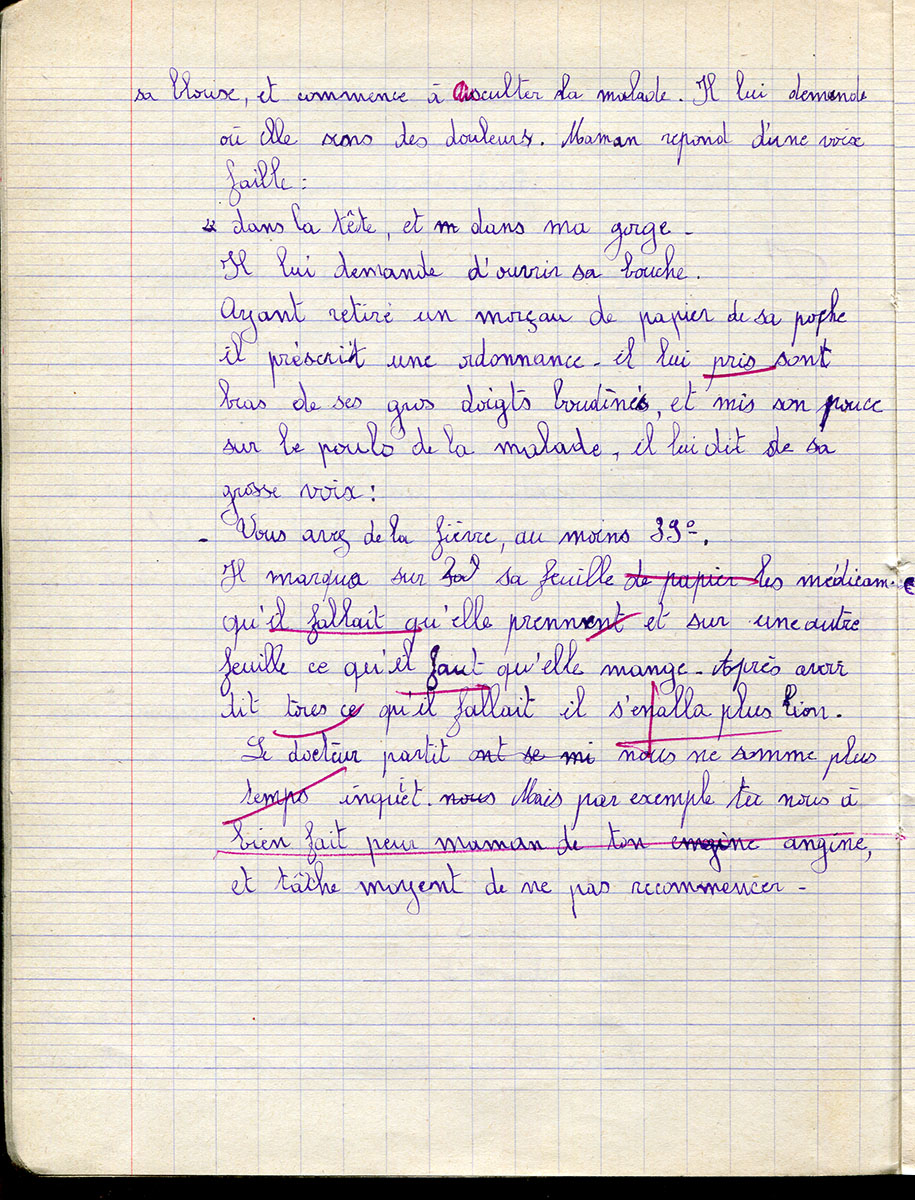 sa blouse, et commence à Ausculter la malade. Il lui demande
où elle sens des douleurs. Maman repond d'une voix
faille :
dans la tête, et dans ma gorge -
Il lui demande d'ouvrir sa bouche.
Ayant retiré un morçau de papier de sa poche
il préscrit une ordonnance - il lui pris sont
bras de ses gros doigts boudinés, et mis son pouce
sur le pouls de la malade, il lui dit de sa
grosse voix :
- Vous avez de la fièvre, au moins 39°.
Il marqua sur sa feuille de papier les médicam.
qu'il fallait qu'elle prennent et sur une autre
feuille ce qu'il faut qu'elle mange - Après avoir
dit tores ce qu'il fallait il s'enalla plus lion.
Le docteur partit ont se mi nous ne somme plus
temps inquièt. nous Mais par exemple tu nous à
bien fait peur maman de ton engine angine,
et tâche moyent de ne pas recommencer -